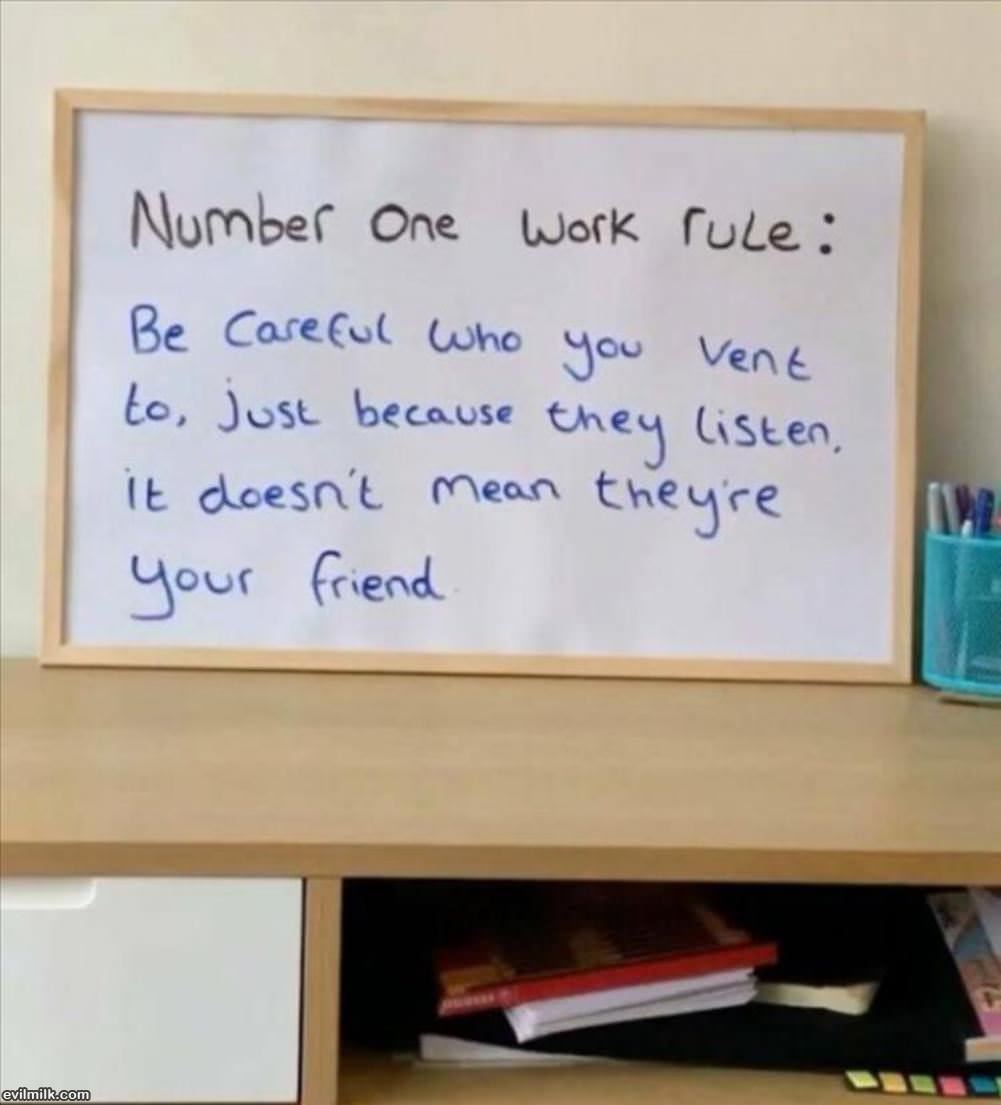 Number One Work rule:
Be Careful who you vent
to, just because they listen,
it doesn't mean they're
your friend.
evilmilk.com